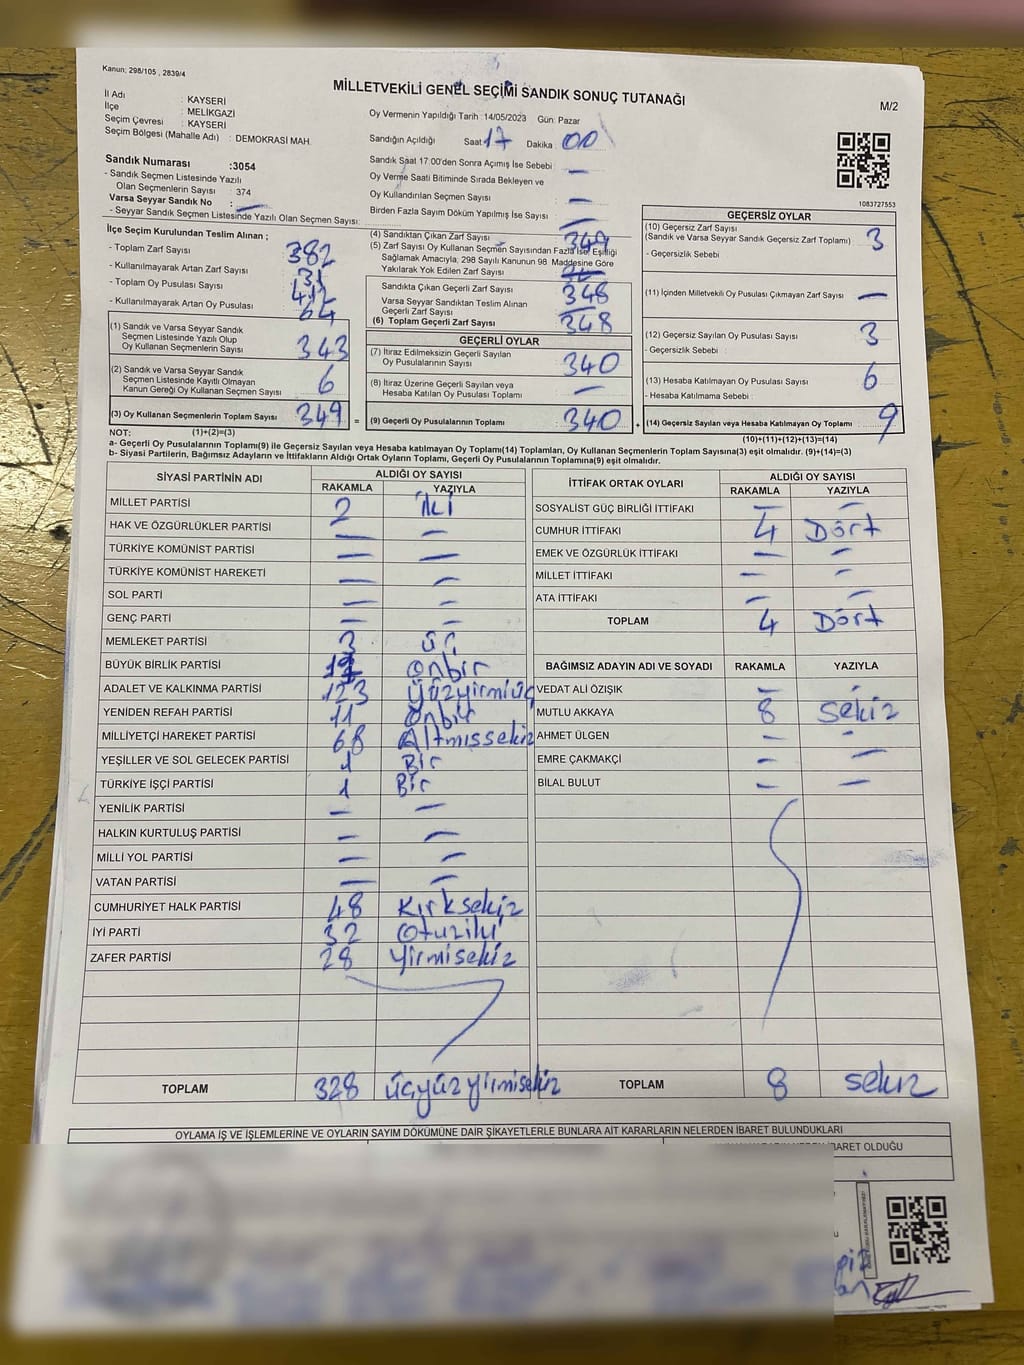 Kanun; 298/105 , 2839/4
MİLLETVEKİLİ GENEL SEÇİMİ SANDIK SONUÇ TUTANAĞI
M/2
İl Adı : KAYSERİ
İlçe : MELİKGAZİ
Seçim Çevresi : KAYSERİ
Seçim Bölgesi (Mahalle Adı) : DEMOKRASİ MAH.
Oy Vermenin Yapıldığı Tarih : 14/05/2023 Gün: Pazar
Sandığın Açıldığı Saat : 17 Dakika : 00
Sandık Saat 17:00'den Sonra Açımış İse Sebebi : —
Oy Verme Saati Bitiminde Sırada Bekleyen ve
Oy Kullandırılan Seçmen Sayısı : —
Birden Fazla Sayım Döküm Yapılmış İse Sayısı : —
Sandık Numarası :3054
- Sandık Seçmen Listesinde Yazılı
Olan Seçmenlerin Sayısı : 374
Varsa Seyyar Sandık No : —
- Seyyar Sandık Seçmen Listesinde Yazılı Olan Seçmen Sayısı:
1083727553
İlçe Seçim Kurulundan Teslim Alınan ;
- Toplam Zarf Sayısı : 382
- Kullanılmayarak Artan Zarf Sayısı : 31
- Toplam Oy Pusulası Sayısı :
- Kullanılmayarak Artan Oy Pusulası : 64
(1) Sandık ve Varsa Seyyar Sandık
Seçmen Listesinde Yazılı Olup
Oy Kullanan Seçmenlerin Sayısı : 343
(2) Sandık ve Varsa Seyyar Sandık
Seçmen Listesinde Kayıtlı Olmayan
Kanun Gereği Oy Kullanan Seçmen Sayısı : 6
(3) Oy Kullanan Seçmenlerin Toplam Sayısı : 349 =
(4) Sandıktan Çıkan Zarf Sayısı : 349
(5) Zarf Sayısı Oy Kullanan Seçmen Sayısından Fazla İse, Eşitliği
Sağlamak Amacıyla, 298 Sayılı Kanunun 98. Maddesine Göre
Yakılarak Yok Edilen Zarf Sayısı :
Sandıkta Çıkan Geçerli Zarf Sayısı : 348
Varsa Seyyar Sandıktan Teslim Alınan
Geçerli Zarf Sayısı : —
(6) Toplam Geçerli Zarf Sayısı : 348
GEÇERLİ OYLAR
(7) İtiraz Edilmeksizin Geçerli Sayılan
Oy Pusulalarının Sayısı : 340
(8) İtiraz Üzerine Geçerli Sayılan veya
Hesaba Katılan Oy Pusulası Toplamı : —
(9) Geçerli Oy Pusulalarının Toplamı : 340 +
GEÇERSİZ OYLAR
(10) Geçersiz Zarf Sayısı
(Sandık ve Varsa Seyyar Sandık Geçersiz Zarf Toplamı) : 3
- Geçersizlik Sebebi :
(11) İçinden Milletvekili Oy Pusulası Çıkmayan Zarf Sayısı : —
(12) Geçersiz Sayılan Oy Pusulası Sayısı : 3
- Geçersizlik Sebebi :
(13) Hesaba Katılmayan Oy Pusulası Sayısı : 6
- Hesaba Katılmama Sebebi :
(14) Geçersiz Sayılan veya Hesaba Katılmayan Oy Toplamı : 9
NOT: (1)+(2)=(3) (10)+(11)+(12)+(13)=(14)
a- Geçerli Oy Pusulalarının Toplamı(9) ile Geçersiz Sayılan veya Hesaba katılmayan Oy Toplamı(14) Toplamları, Oy Kullanan Seçmenlerin Toplam Sayısına(3) eşit olmalıdır. (9)+(14)=(3)
b- Siyasi Partilerin, Bağımsız Adayların ve İttifakların Aldığı Ortak Oyların Toplamı, Geçerli Oy Pusulalarının Toplamına(9) eşit olmalıdır.
SİYASİ PARTİNİN ADI ALDIĞI OY SAYISI
RAKAMLA YAZIYLA
MİLLET PARTİSİ 2 iki
HAK VE ÖZGÜRLÜKLER PARTİSİ — —
TÜRKİYE KOMÜNİST PARTİSİ — —
TÜRKİYE KOMÜNİST HAREKETİ — —
SOL PARTİ — —
GENÇ PARTİ — —
MEMLEKET PARTİSİ 3 üç
BÜYÜK BİRLİK PARTİSİ 11 onbir
ADALET VE KALKINMA PARTİSİ 123 Yüzyirmiüç
YENİDEN REFAH PARTİSİ 11 Onbir
MİLLİYETÇİ HAREKET PARTİSİ 68 Altmışsekiz
YEŞİLLER VE SOL GELECEK PARTİSİ 1 Bir
TÜRKİYE İŞÇİ PARTİSİ 1 Bir
YENİLİK PARTİSİ — —
HALKIN KURTULUŞ PARTİSİ — —
MİLLİ YOL PARTİSİ — —
VATAN PARTİSİ — —
CUMHURİYET HALK PARTİSİ 48 Kırksekiz
İYİ PARTİ 32 Otuziki
ZAFER PARTİSİ 28 Yirmisekiz
TOPLAM 328 üçyüzyirmisekiz
İTTİFAK ORTAK OYLARI ALDIĞI OY SAYISI
RAKAMLA YAZIYLA
SOSYALİST GÜÇ BİRLİĞİ İTTİFAKI — —
CUMHUR İTTİFAKI 4 Dört
EMEK VE ÖZGÜRLÜK İTTİFAKI — —
MİLLET İTTİFAKI — —
ATA İTTİFAKI — —
TOPLAM 4 Dört
BAĞIMSIZ ADAYIN ADI VE SOYADI RAKAMLA YAZIYLA
VEDAT ALİ ÖZIŞIK — —
MUTLU AKKAYA 8 Sekiz
AHMET ÜLGEN — —
EMRE ÇAKMAKÇİ — —
BİLAL BULUT — —
TOPLAM 8 sekiz
OYLAMA İŞ VE İŞLEMLERİNE VE OYLARIN SAYIM DÖKÜMÜNE DAİR ŞİKAYETLERLE BUNLARA AİT KARARLARIN NELERDEN İBARET BULUNDUKLARI
İBARET OLDUĞU